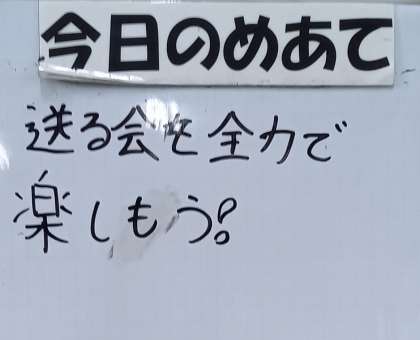 今日のめあて
送る会を全力で
楽しもう!